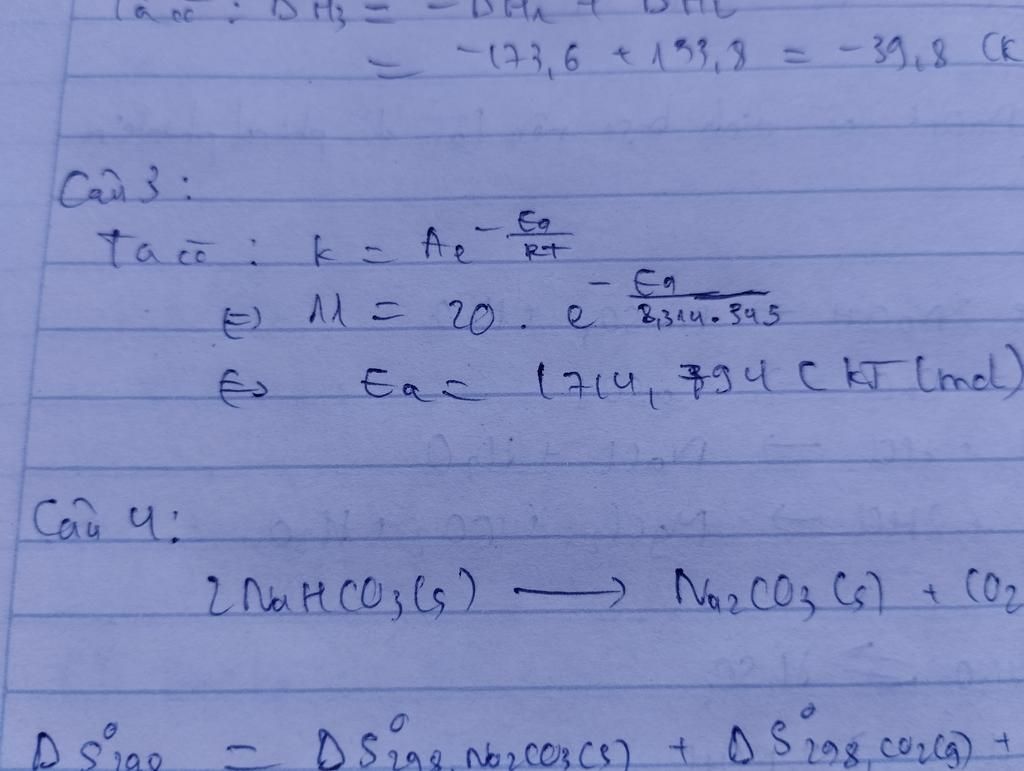 Ta có : DH3 = - DH1 + DH2
= -173,6 + 133,8 = -39,8 (k
Câu 3 :
Ta có : k = Ae^-Ea/RT
⇔ 11 = 20 . e^-Ea/8,314.345
⇔ Ea = 1714,794 ( kJ (mol)
Câu 4 :
2NaHCO3(s) ⟶ Na2CO3 (s) + CO2
DS°298 = DS°298,Na2CO3(s) + DS°298,CO2(g) +